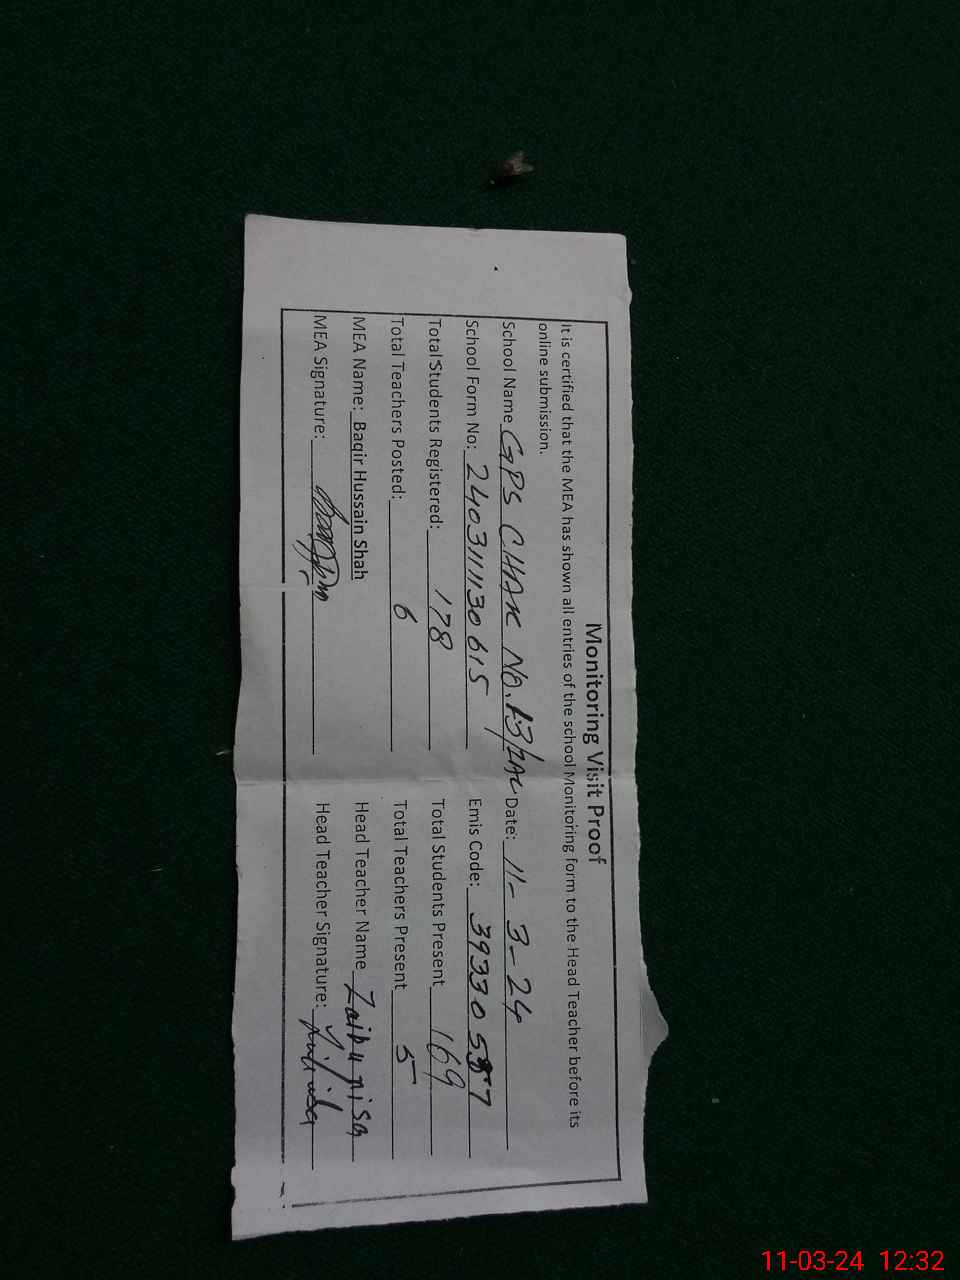 Monitoring Visit Proof
It is certified that the MEA has shown all entries of the school Monitoring form to the Head Teacher before its
online submission.
School Name GPS CHAK No. 13/1AL Date: 11-3-24
School Form No: 2403111130615 Emis Code: 39330557
Total Students Registered: 178 Total Students Present 169
Total Teachers Posted: 6 Total Teachers Present 5
MEA Name: Baqir Hussain Shah Head Teacher Name Zaibunisa
MEA Signature: Head Teacher Signature:
11-03-24 12:32